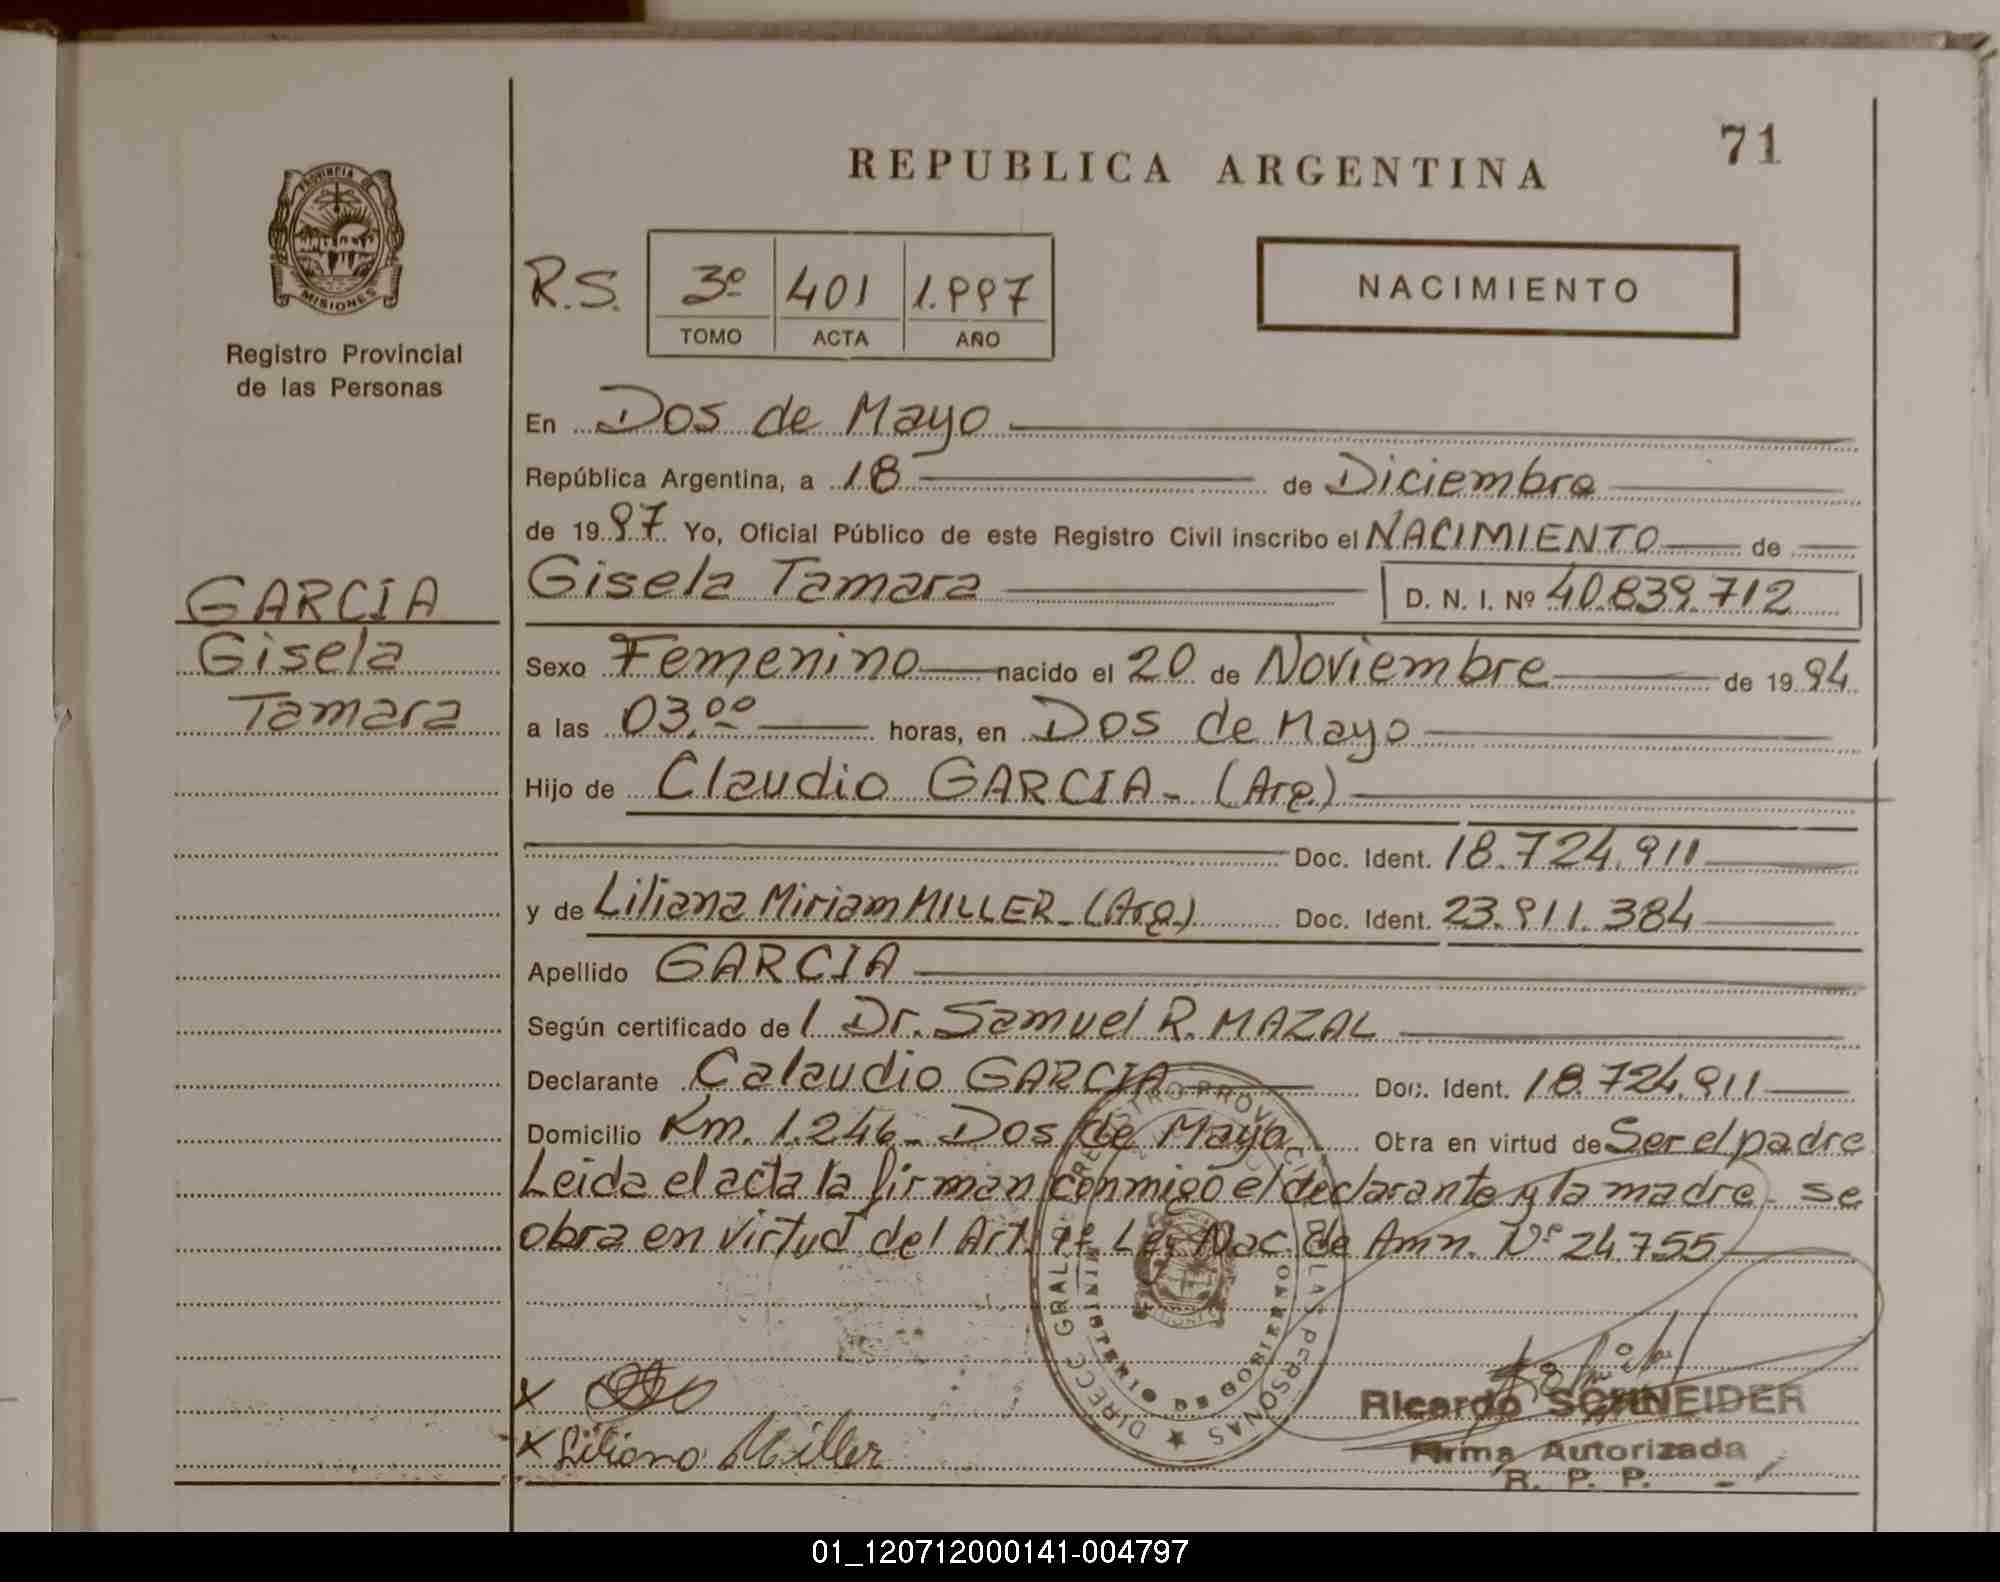 71
REPUBLICA ARGENTINA
PROVINCIA DE
MISIONES
Registro Provincial
de las Personas
R.S. 3º 401 1.997
TOMO ACTA AÑO
NACIMIENTO
En Dos de Mayo
República Argentina, a 18 de Diciembre
de 1997 Yo, Oficial Público de este Registro Civil inscribo el NACIMIENTO de
Gisela Tamara D. N. I. Nº 40.839.712
GARCIA
Gisela
Tamara
Sexo Femenino nacido el 20 de Noviembre de 1994
a las 03.00 horas, en Dos de Mayo
Hijo de Claudio GARCIA - (Arg.)
Doc. Ident. 18.724.911
y de Liliana Miriam MILLER - (Arg.) Doc. Ident. 23.911.384
Apellido GARCIA
Según certificado del Dr. Samuel R. MAZAL
Declarante Calaudio GARCIA Doc. Ident. 18.724.911
Domicilio Km. 1.246 - Dos de Mayo Obra en virtud de Ser el padre
Leida el acta la firman conmigo el declarante y la madre - se
obra en virtud del Art. Ley Nac. de Amn. Nº 24.755
DIRECC GRAL REGISTRO PROVINCIAL DE LAS PERSONAS
MINISTERIO DE GOBIERNO
x
x Liliana Miller
Ricardo SCHNEIDER
Firma Autorizada
R. P. P.
01_120712000141-004797